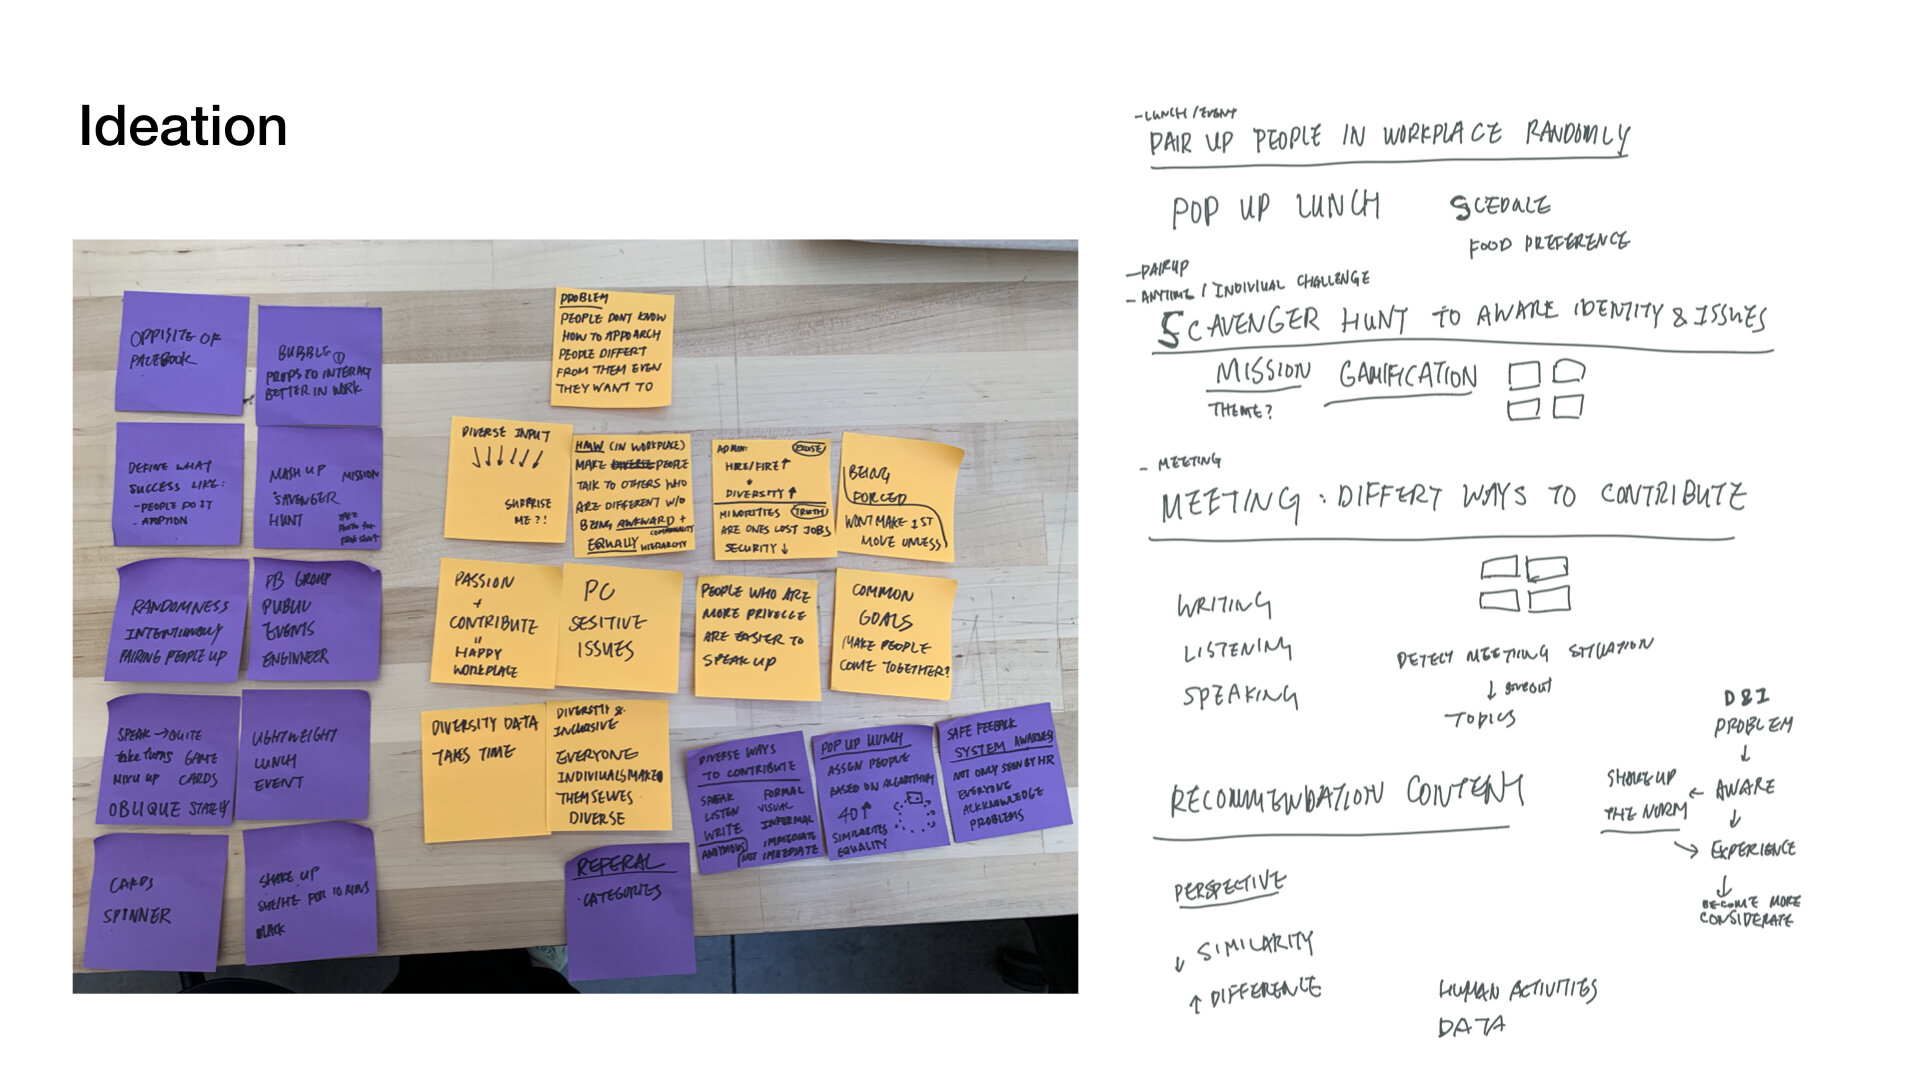 Ideation
OPPISITE OF
FACEBOOK
BUBBLE
PROPS TO INTERACT
BETTER IN WORK
DEFINE WHAT
SUCCESS LIKE:
- PEOPLE DO IT
- ADOPTION
MASH UP MISSION
SAVENGER
HUNT
RANDOMNESS
INTENTIONALLY
PAIRING PEOPLE UP
GROUP
PUBLIC
EVENTS
ENGINNEER
SPEAK → QUITE
take turns GAME
MIX UP CARDS
OBLIQUE
LIGHTWEIGHT
LUNCH
EVENT
CARDS
SPINNER
SHAKE UP
SHE/HE FOR 10 MINS
BLACK
PROBLEM
PEOPLE DONT KNOW
HOW TO APPOARCH
PEOPLE DIFFERT
FROM THEM EVEN
THEY WANT TO
DIVERSE INPUT
↓↓↓↓↓↓
SURPRISE
ME?!
HMW (IN WORKPLACE)
MAKE DIVERSE PEOPLE
TALK TO OTHERS WHO
ARE DIFFERENT W/O
BEING AWKWARD +
EQUALLY HIERARCHY
ADMIN: EXCUSE
HIRE/FIRE↑
DIVERSITY↑
MINORITIES TRUTH
ARE ONES LOST JOBS
SECURITY↓
BEING
FORCED
WONT MAKE 1ST
MOVE UNLESS
PASSION
+
CONTRIBUTE
"
HAPPY
WORKPLACE
PC
SESITIVE
ISSUES
PEOPLE WHO ARE
MORE PRIVELGE
ARE EASIER TO
SPEAK UP
COMMON
GOALS
MAKE PEOPLE
COME TOGETHER?
DIVERSITY DATA
TAKES TIME
DIVERSITY &
INCLUSIVE
EVERYONE
INDIVIUALS MAKE
THEMSELVES
DIVERSE
DIVERSE WAYS
TO CONTRIBUTE
SPEAK FORMAL
LISTEN VISUAL
WRITE INFORMAL
ANONYMOUS IMMEDIATE
NOT IMMEDIATE
POP UP LUNCH
ASSGN PEOPLE
BASED ON ALGORITHM
40↑
SIMILARITES
EQUALITY
SAFE FEEBACK
SYSTEM AWARNESS
NOT ONLY SEEN BY HR
EVERYONE
ACKNOWLEDGE
PROBLEMS
REFERAL
CATEGORIES
- LUNCH / EVENT
PAIR UP PEOPLE IN WORKPLACE RANDOMLY
POP UP LUNCH
SCEDULE
FOOD PREFERENCE
- PAIRUP
- ANYTIME / INDIVIUAL CHALLENGE
SCAVENGER HUNT TO AWARE IDENTITY & ISSUES
MISSION GAMIFICATION
THEME?
- MEETING
MEETING : DIFFERT WAYS TO CONTRIBUTE
WRITING
LISTENING
SPEAKING
DETECT MEETING SITUATION
↓ giveout
TOPICS
D&I
PROBLEM
↓
SHAKE UP ← AWARE
THE NORM ↓
→ EXPERIENCE
↓
BECOME MORE
CONSIDERATE
RECOMMENDATION CONTENT
PERSPECTIVE
↓ SIMILARITY
↑ DIFFERENCE
HUMAN ACTIVITIES
DATA